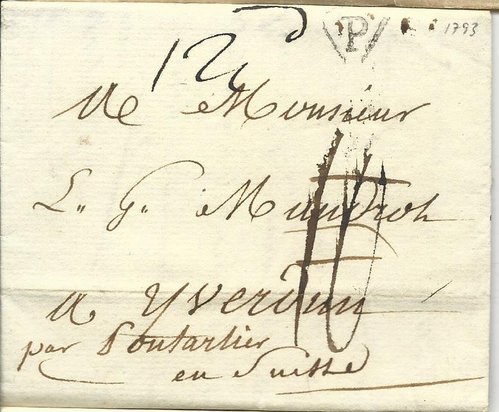 P 1793
12
A Monsieur
L. G. Mandrot
a Yverdun
par Pontarlier
en Suisse